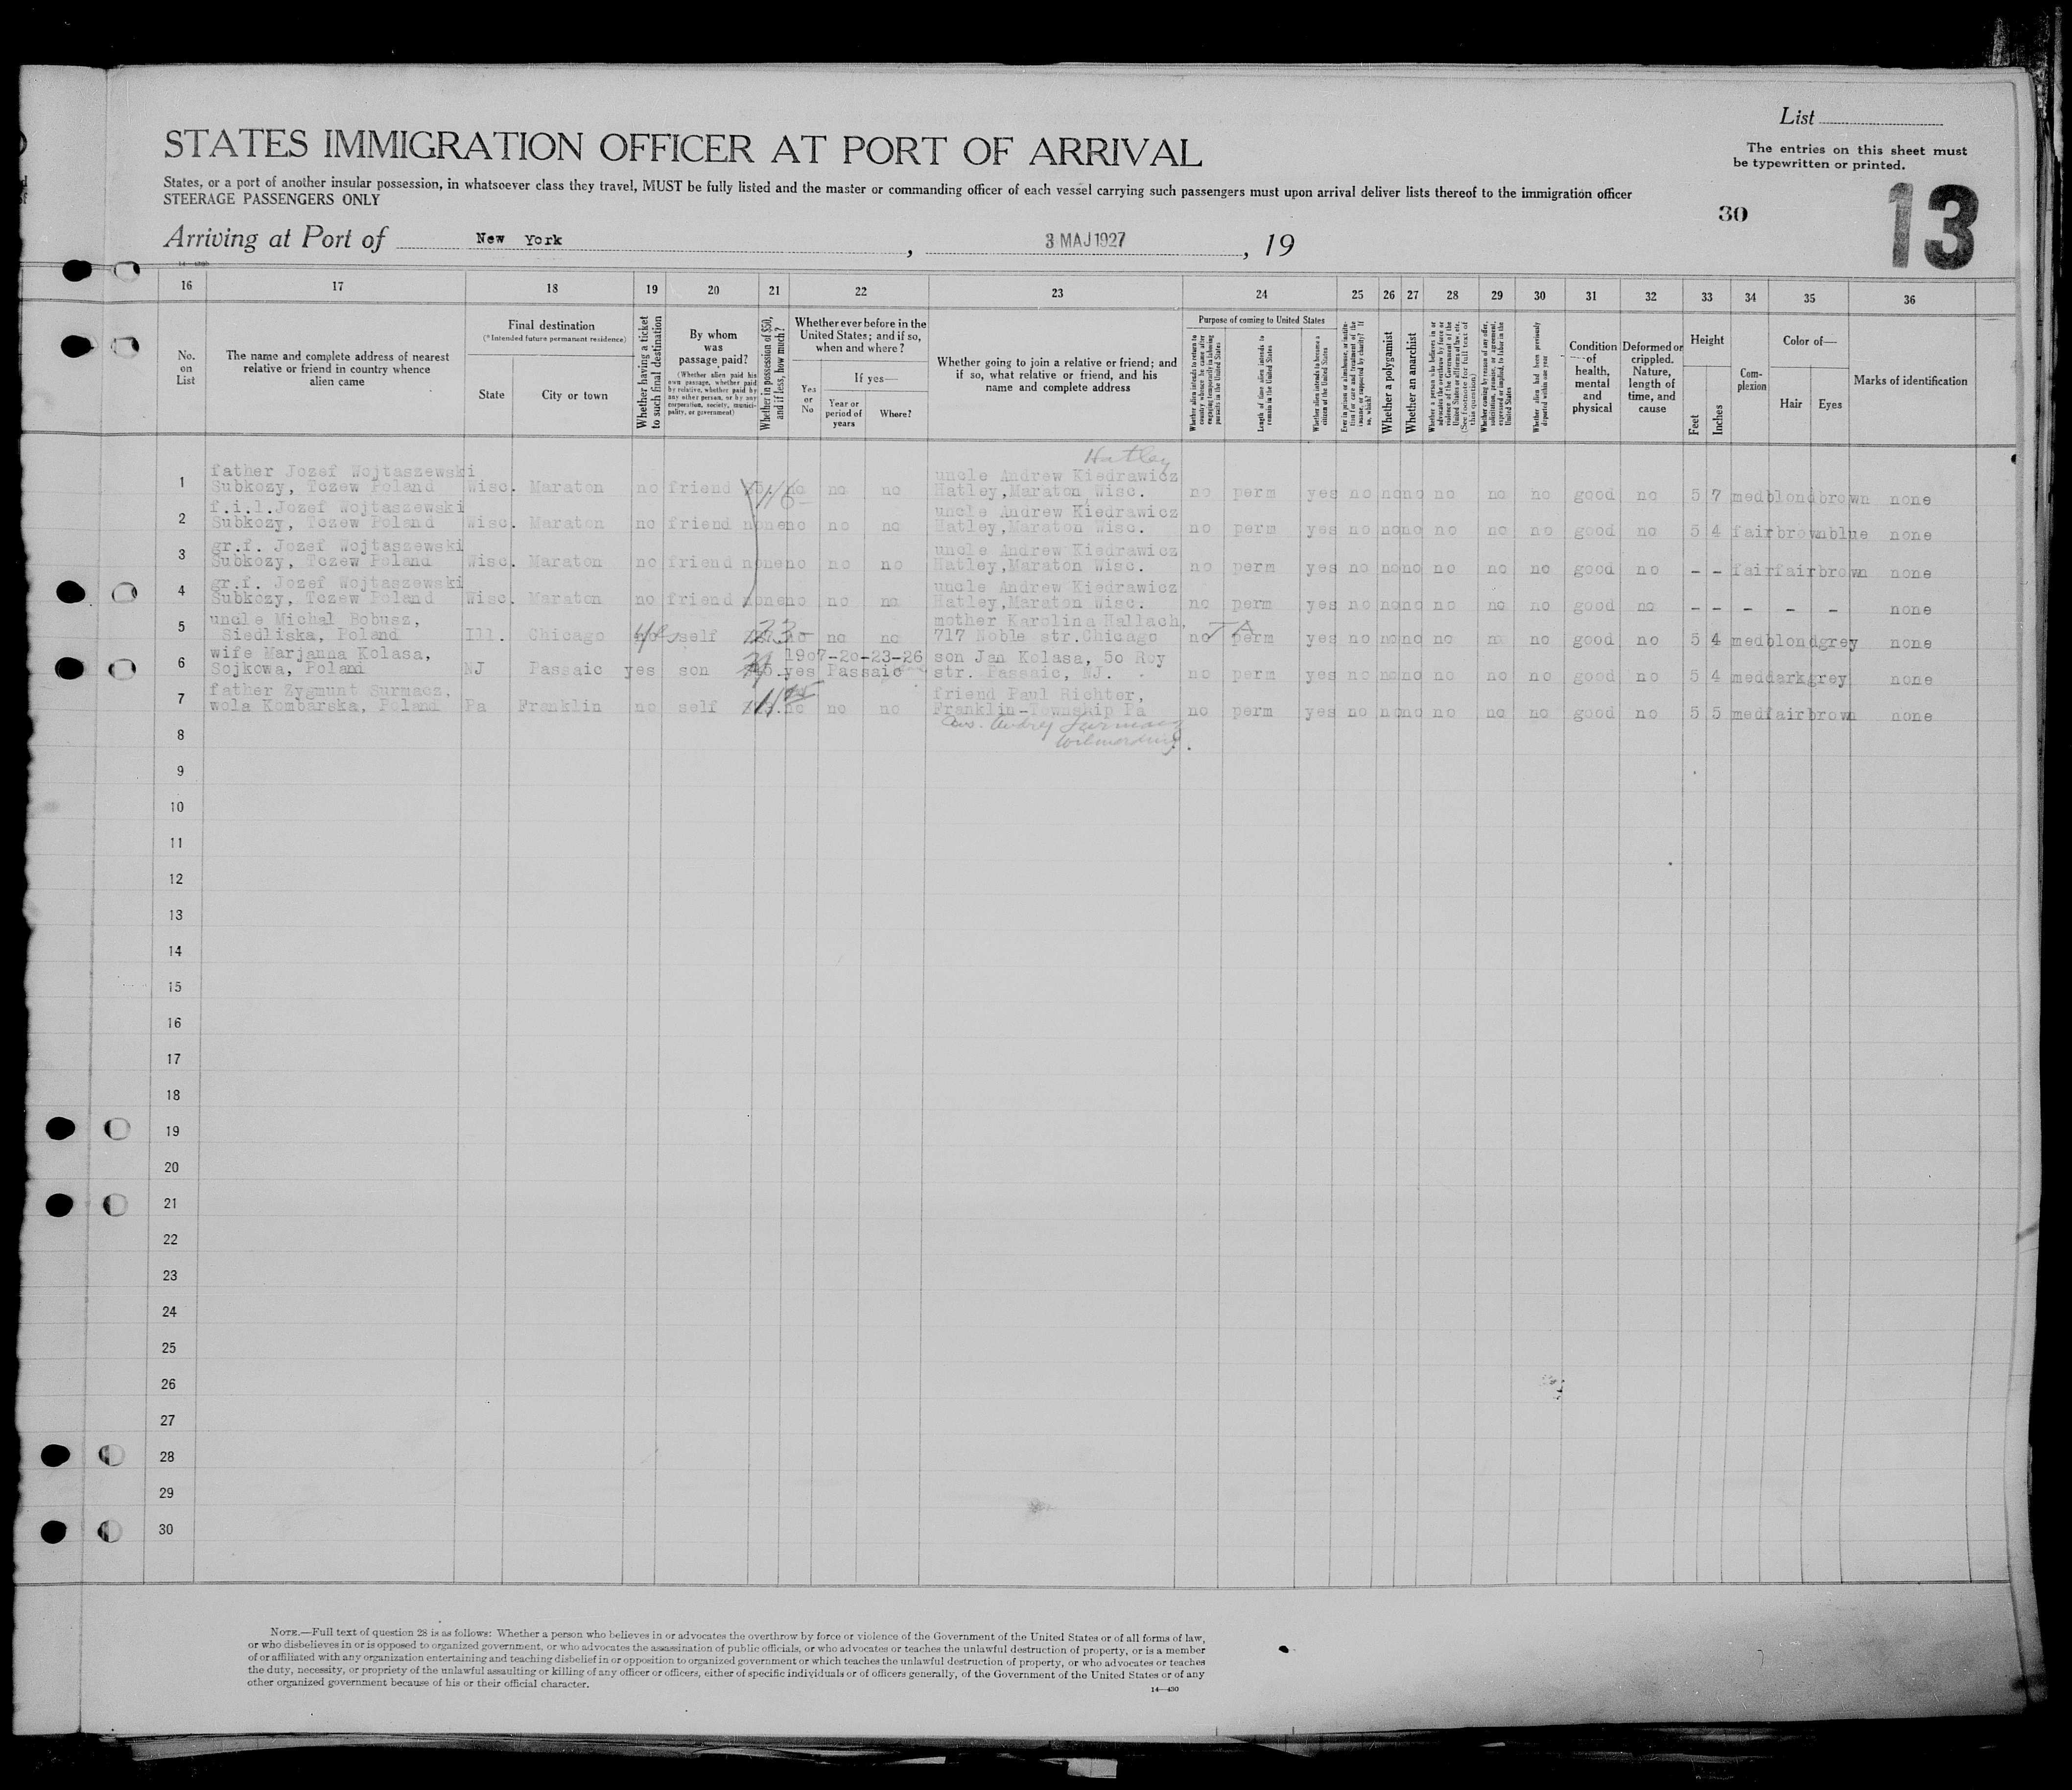 List
STATES IMMIGRATION OFFICER AT PORT OF ARRIVAL
The entries on this sheet must
be typewritten or printed.
States, or a port of another insular possession, in whatsoever class they travel, MUST be fully listed and the master or commanding officer of each vessel carrying such passengers must upon arrival deliver lists thereof to the immigration officer
STEERAGE PASSENGERS ONLY
30
13
Arriving at Port of New York, 3 MAJ 1927, 19
16 17 18 19 20 21 22 23 24 25 26 27 28 29 30 31 32 33 34 35 36
No. on List
The name and complete address of nearest relative or friend in country whence alien came
Final destination
(*Intended future permanent residence)
State
City or town
Whether having a ticket to such final destination
By whom was passage paid?
(Whether alien paid his own passage, whether paid by relative, whether paid by any other person, or by any corporation, society, municipality, or government)
Whether in possession of $50, and if less, how much?
Whether ever before in the United States; and if so, when and where?
Yes or No
If yes—
Year or period of years
Where?
Whether going to join a relative or friend; and if so, what relative or friend, and his name and complete address
Purpose of coming to United States
Whether alien intends to return to country whence he came after engaging temporarily in laboring pursuits in the United States
Length of time alien intends to remain in the United States
Whether alien intends to become a citizen of the United States
Ever in prison or almshouse, or institution for care and treatment of the insane, or supported by charity? If so, which?
Whether a polygamist
Whether an anarchist
Whether a person who believes in or advocates the overthrow by force or violence of the Government of the United States or all forms of law, etc. (See footnote for full text of this question)
Whether coming by reason of any offer, solicitation, promise, or agreement, expressed or implied, to labor in the United States
Whether alien had been previously deported within one year
Condition of health, mental and physical
Deformed or crippled. Nature, length of time, and cause
Height
Feet
Inches
Complexion
Color of—
Hair
Eyes
Marks of identification
Hatley
father Jozef Wojtaszewski uncle Andrew Kiedrawicz
1 Subkozy, Tczew Poland Wisc. Maraton no friend no no no Hatley,Maraton Wisc. no perm yes no no no no no no good no 5 7 med blond brown none
f.i.l.Jozef Wojtaszewski uncle Andrew Kiedrawicz
2 Subkozy, Tczew Poland Wisc. Maraton no friend none no no no Hatley,Maraton Wisc. no perm yes no no no no no no good no 5 4 fair brown blue none
gr.f. Jozef Wojtaszewski uncle Andrew Kiedrawicz
3 Subkozy, Tczew Poland Wisc. Maraton no friend none no no no Hatley,Maraton Wisc. no perm yes no no no no no no good no - - fair fair brown none
gr.f. Jozef Wojtaszewski uncle Andrew Kiedrawicz
4 Subkozy, Tczew Poland Wisc. Maraton no friend none no no no Hatley,Maraton Wisc. no perm yes no no no no no no good no - - - - - none
uncle Michal Bobusz, mother Karolina Hallach,
5 Siedliska, Poland Ill. Chicago self no no no 717 Noble str.Chicago no perm yes no no no no no no good no 5 4 med blond grey none
wife Marjanna Kolasa, 1907-20-23-26 son Jan Kolasa, 50 Roy
6 Sojkowa, Poland NJ Passaic yes son yes Passaic str. Passaic, NJ. no perm yes no no no no no no good no 5 4 med dark grey none
father Zygmunt Surmacz, friend Paul Richter,
7 wola Kombarska, Poland Pa Franklin no self no no no Franklin-Township Pa no perm yes no no no no no no good no 5 5 med fair brown none
8
9
10
11
12
13
14
15
16
17
18
19
20
21
22
23
24
25
26
27
28
29
30
NOTE.—Full text of question 28 is as follows: Whether a person who believes in or advocates the overthrow by force or violence of the Government of the United States or of all forms of law,
or who disbelieves in or is opposed to organized government, or who advocates the assassination of public officials, or who advocates or teaches the unlawful destruction of property, or is a member
of or affiliated with any organization entertaining and teaching disbelief in or opposition to organized government or which teaches the unlawful destruction of property, or who advocates or teaches
the duty, necessity, or propriety of the unlawful assaulting or killing of any officer or officers, either of specific individuals or of officers generally, of the Government of the United States or of any
other organized government because of his or their official character.
14—430